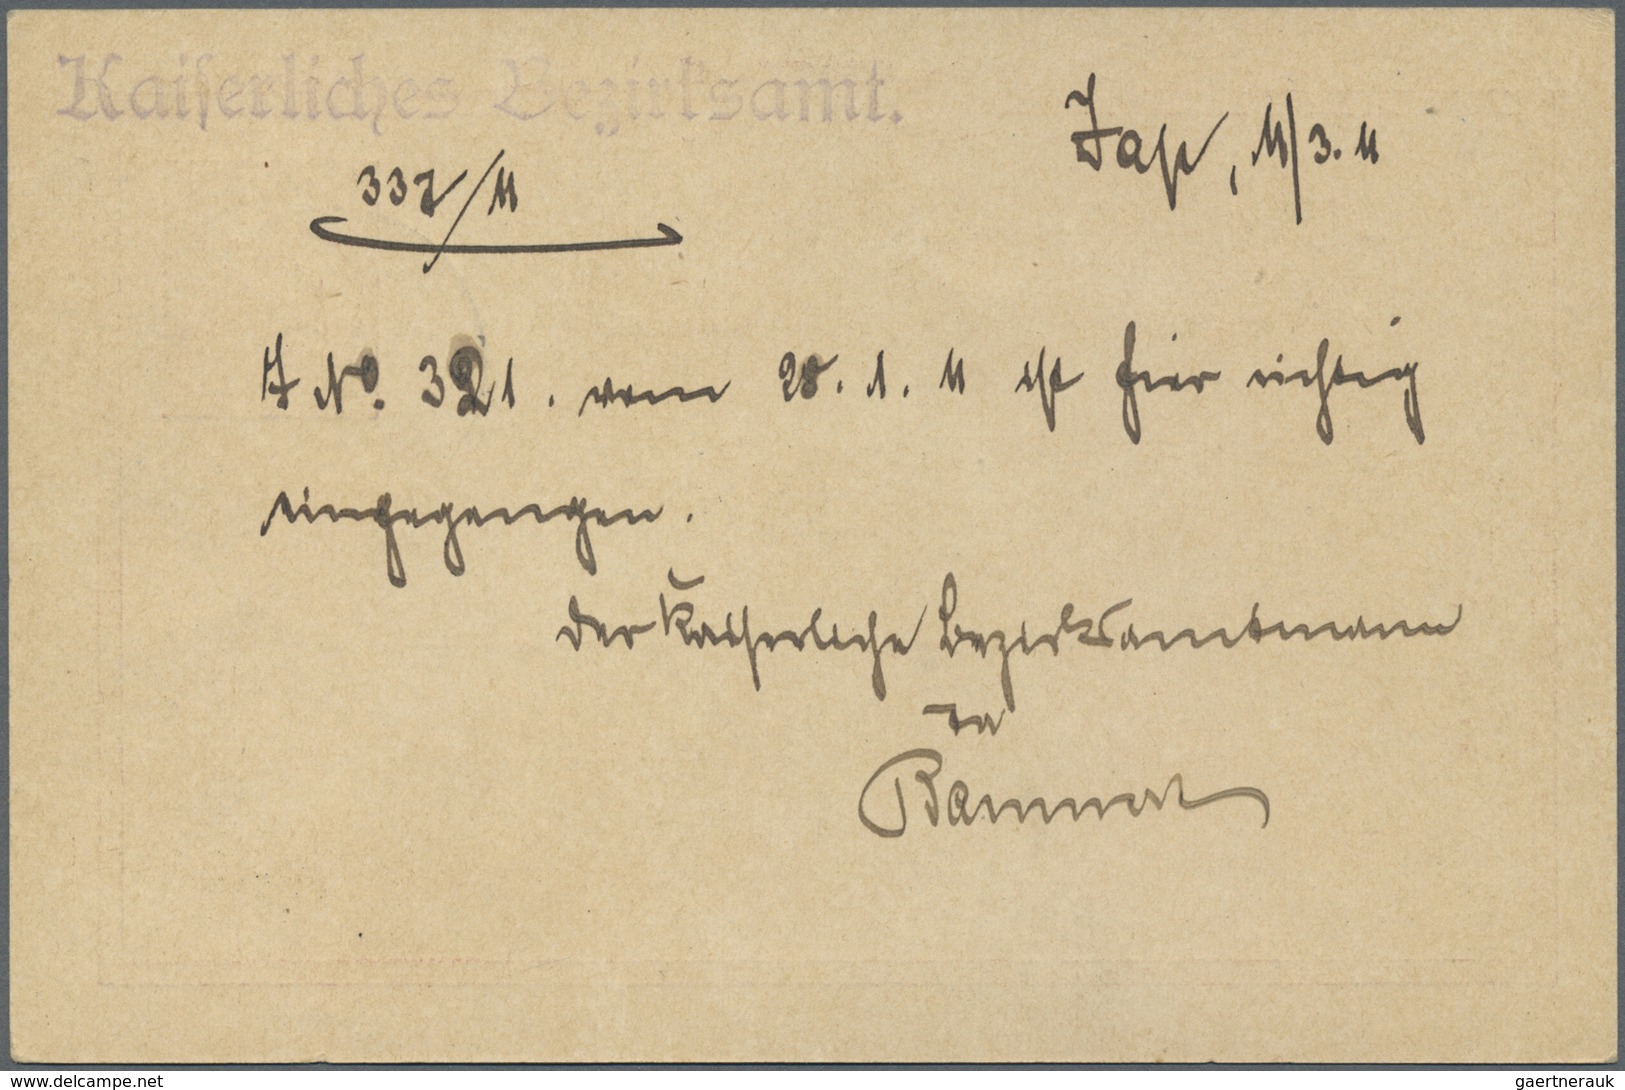 Kaiserliches Bezirksamt.
Jap, 11/3. 11
337/11
J No. 321. vom 28. 1. 11 ist hier richtig
eingegangen.
Der Kaiserliche Bezirksamtmann
www.delcampe.net
gaertnerauk